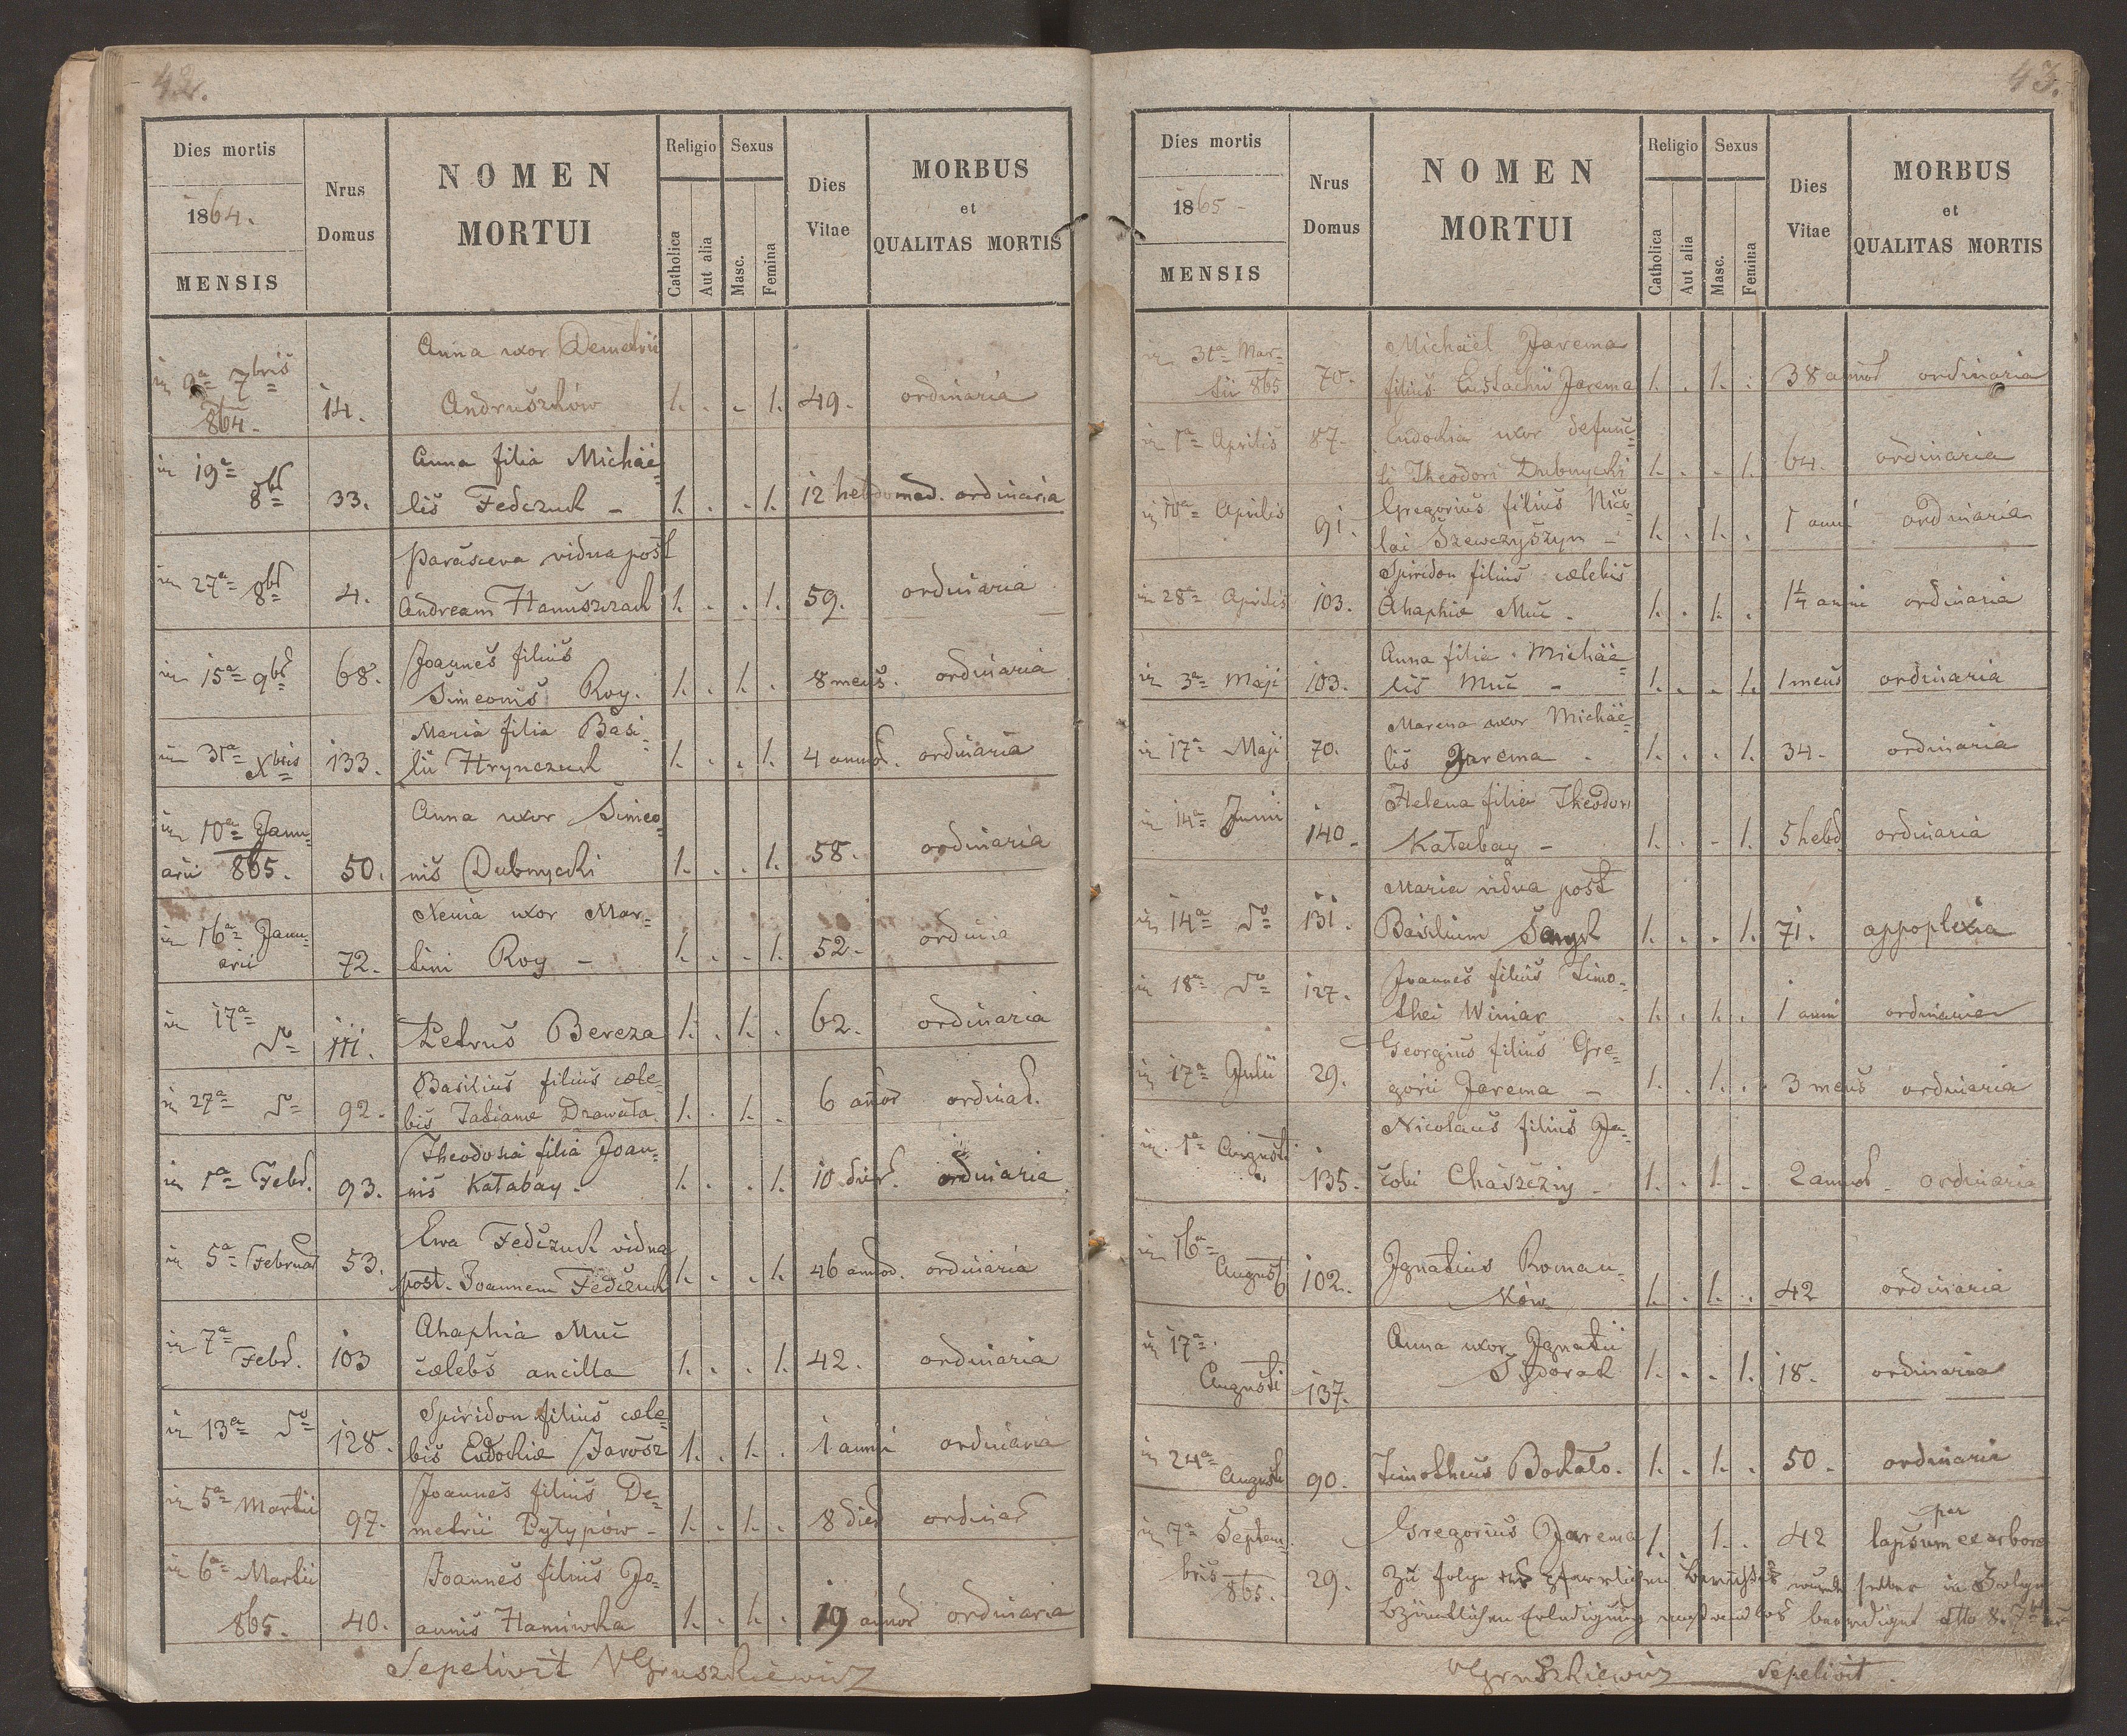 42.
Dies mortis
1864.
MENSIS
Nrus
Domus
NOMEN
MORTUI
Religio
Catholica
Aut alia
Sexus
Masc.
Femina
Dies
Vitae
MORBUS
et
QUALITAS MORTIS
Anna uxor Demetrii
in 9a 7bris 864. 14. Andruszków 1. . . 1. 49. ordinaria
Anna filia Michaë=
in 19a 8br 33. lis Fedczuch - 1. . . 1. 12 hebdomad. ordinaria
Parasceva vidua post
in 27a 8br 4. Andream Hanuszczach 1. . . 1. 59. ordinaria
Joannes filius
in 15a 9br 68. Simeonis Roy. 1. . 1. . 8 mens. ordinaria
Maria filia Basi=
in 31a Xbris 133. lii Hrynczuch 1. . . 1. 4 annor. ordinaria
Anna uxor Simeo=
in 10a Janu=
arii 865. 50. nis Dubnycki 1. . . 1. 58. ordinaria
Xenia uxor Mar=
in 16a Janu=
arii 72. tini Roy - 1. . . 1. 52. ordinia
in 17a do 111. Petrus Bereza 1. . 1. . 62. ordinaria
Basilius filius cœle=
in 27a do 92. bis Tatianæ Drawała. 1. . 1. . 6 anor ordinar.
Theodosia filia Joan=
in 1a Febr. 93. nis Kałabay. 1. . . 1. 10 dier. ordinaria
Ewa Fedczuch vidua
in 5a Februar 53. post. Joannem Fedczuch 1. . . 1. 46 annor. ordinaria
Ahaphia Muc
in 7a Febr. 103 cælebs ancilla 1. . . 1. 42. ordinaria
Spiridon filius cæle=
in 13a do 128. bis Eudochiæ Jarosz 1. . 1. . 1 anni ordinaria
Joannes filius De=
in 5a Martii 97. metrii Pyłypów - 1. . 1. . 8 dier ordinar
Joannes filius Jo=
in 6a Martii
865. 40. annis Hamiwka 1. . 1. . 19 annor ordinaria
Sepelivit VGruszkiewicz
43.
Dies mortis
1865
MENSIS
Nrus
Domus
NOMEN
MORTUI
Religio
Catholica
Aut alia
Sexus
Masc.
Femina
Dies
Vitae
MORBUS
et
QUALITAS MORTIS
Michaël Jarema
in 31a Mar=
tii 865 70. filius Eustachii Jarema 1. . 1. . 38 annor ordinaria
in 1a Aprilis 87. Eudochia uxor defunc=
ti Theodori Dubnycki 1. . . 1. 64. ordinaria
Gregorius filius Nico=
in 10a Aprilis 91. lai Szewczyszyn - 1. . 1. . 1 anni ordinaria
Spiridon filius cælebis
in 28a Aprilis 103. Ahaphiæ Muc. 1. . 1. . 1¼ anni ordinaria
Anna filia Michaë=
in 3a Maji 103. lis Muc - 1. . . 1. 1 mens ordinaria
Marena uxor Michaë=
in 17a Maji 70. lis Jarema. 1. . . 1. 34. ordinaria
Helena filia Theodori
in 14a Junii 140. Kałabay - 1. . . 1. 5 hebd. ordinaria
Maria vidua post
in 14a do 131. Basilium 1. . . 1. 71. appoplexia
Joannes filius Timo=
in 18a do 127. thei Winiar 1. . 1. . 1 anni ordinaria
Georgius filius Gre=
in 17a Julii 29. gorii Jarema - 1. . 1. . 3 mens ordinaria
Nicolaus filius Ja=
in 1a Augusti 135. cobi Chaszczij - 1. . 1. . 2 annor. ordinaria
in 16a Augusti 102. Ignatius Roman=
ków 1. . 1. . 42 ordinaria
in 17a Anna uxor Ignatii
Augusti 137. Sydorak 1. . . 1. 18. ordinaria
in 24a Augusti 90. Timotheus Bochało. 1. . 1. . 50. ordinaria
in 7a Septem=
bris 865. 29. Gregorius Jarema 1. . 1. . 42 per lapsum ex arbore
Zu folge des pfarrlichen Berichtes wurde selber in Folge
bezirklichen Erledigung beerdiget dtto 8. 7br
VGruszkiewicz Sepelivit.